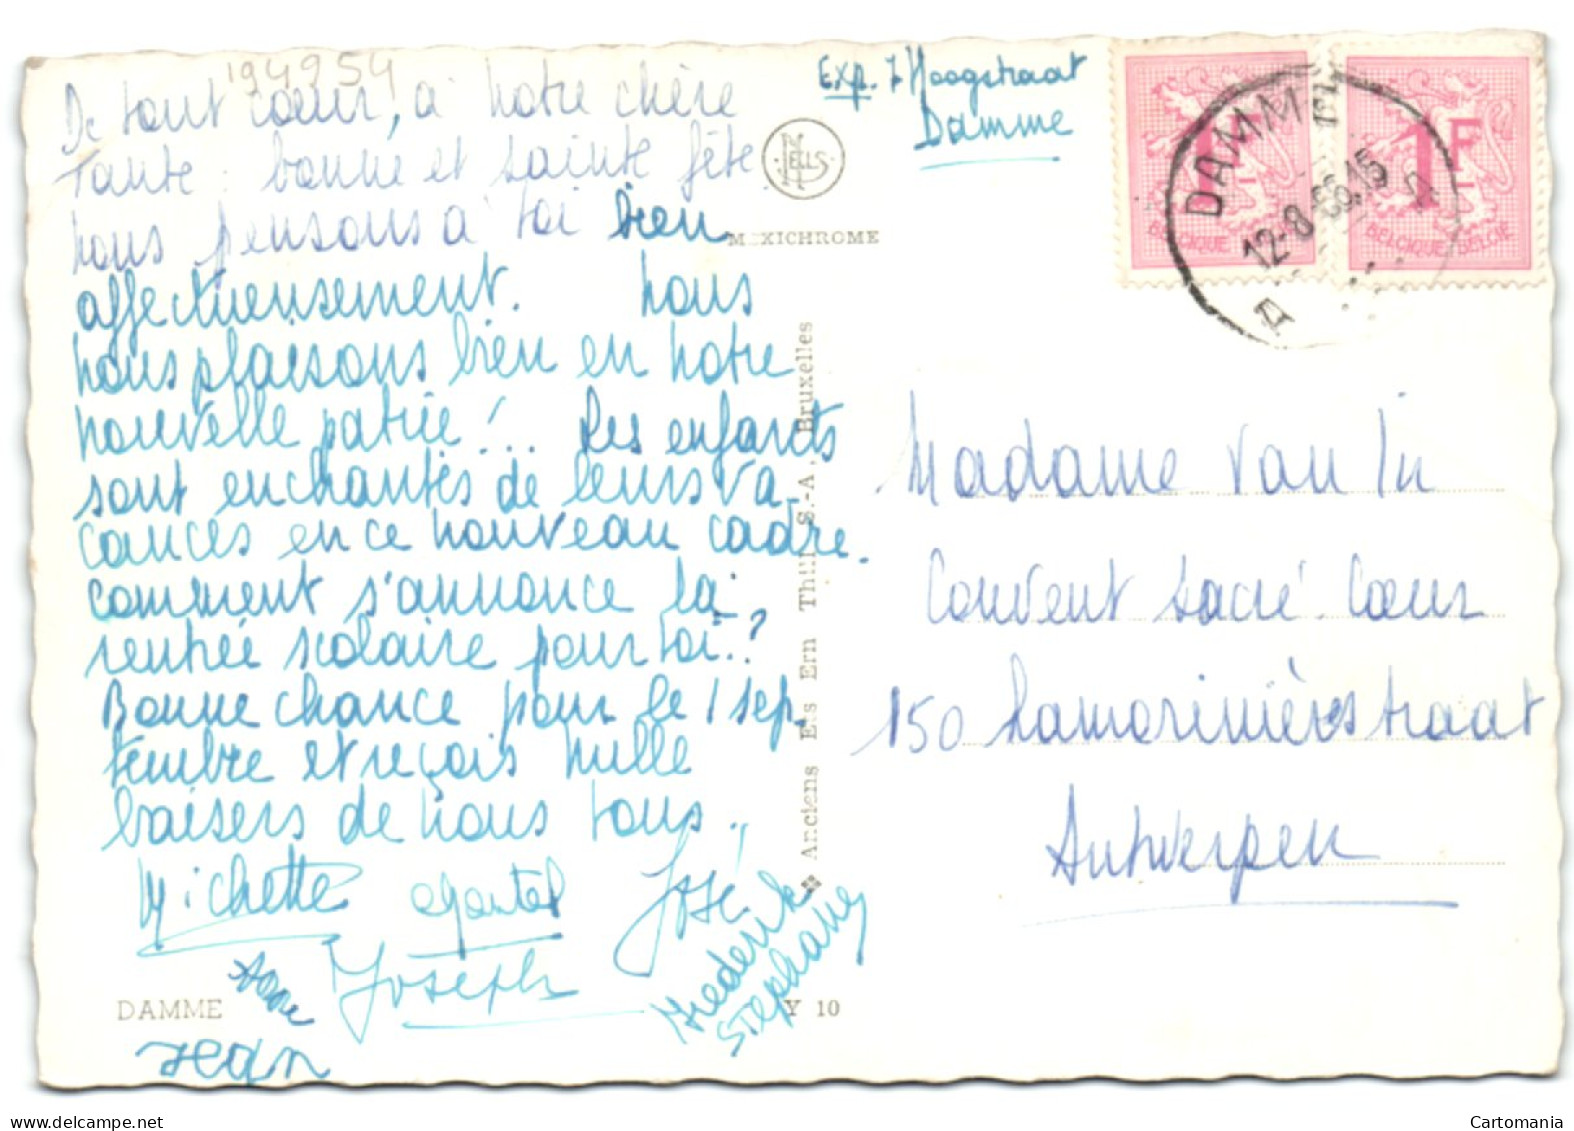 194954
De tout cœur, à notre chère
Tante : bonne et sainte fête.
nous pensons à toi bien
affectueusement. nous
nous plaisons bien en notre
nouvelle patrie!... Les enfants
sont enchantés de leurs va-
cances en ce nouveau cadre.
comment s'annonce la
rentrée scolaire pour toi..?
Bonne chance pour le 1 sep-
tembre et reçois mille
baisers de nous tous.
Michette Chantal José
Joseph
Frederik
Stephany
Anne
Jean
DAMME
Y 10
NELLS
MEXICHROME
❖ Anciens Ets Ern Thill S.-A, Bruxelles
Exp. 7 Hoogstraat
Damme
1F
BELGIQUE
1F
BELGIQUE BELGIË
DAMME
12-8-66.15
Madame Van In
Couvent Sacré-Cœur
150 Lamorinièrestraat
Antwerpen
Cartomania